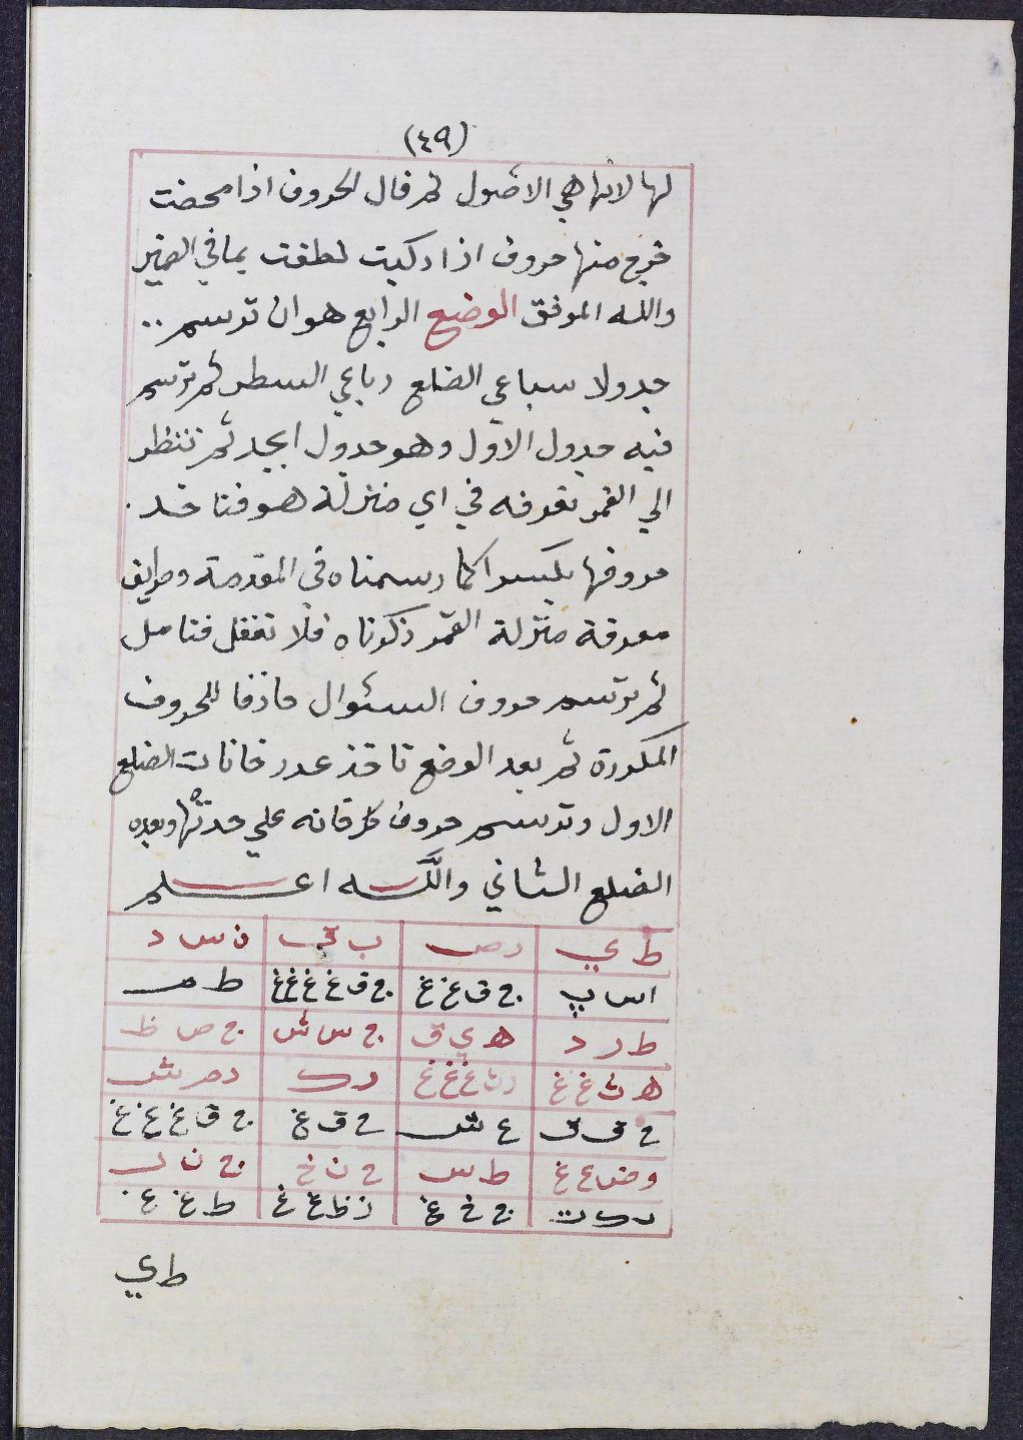 (٤٩)
لها لانها هي الاصول ثم قال الحروف اذا محضت
خرج منها حروف اذا ركبت لطفت بما في الضمير
والله الموفق الوضع الرابع هو ان ترسم ..
جدولا سباعي الضلع رباعي السطر ثم ترسم
فيه جدول الاول وهو جدول ابجد ثم تنظر
الي القمر تعرفه في اي منزلة هو فتاخذ .
حروفها بكسرا كما رسمناه في المقدمة وطريق
معرفة منزلة القمر ذكرناه فلا تغفل فتامل
ثم ترسم حروف السئوال حاذفا للحروف
المكررة ثم بعد الوضع تاخذ عدد خانات الضلع
الاول وترسم حروف كل خانه علي حدتها وبعده
الضلع الثاني والله اعلم
ط ي رص ب ق ن س د
اس ج ق غ غ ج ق غ غ غ غ ط م
ط ر د ه ي ق ج س ش ج ص ظ
ه ث غ غ غ غ غ رك ش
ح ق ق ع ش ح ق غ ج ق غ غ غ
و ض غ غ ط س ح ن خ ج ن ل
رك ت ج خ غ ز ظ غ غ ط غ غ
ط ي